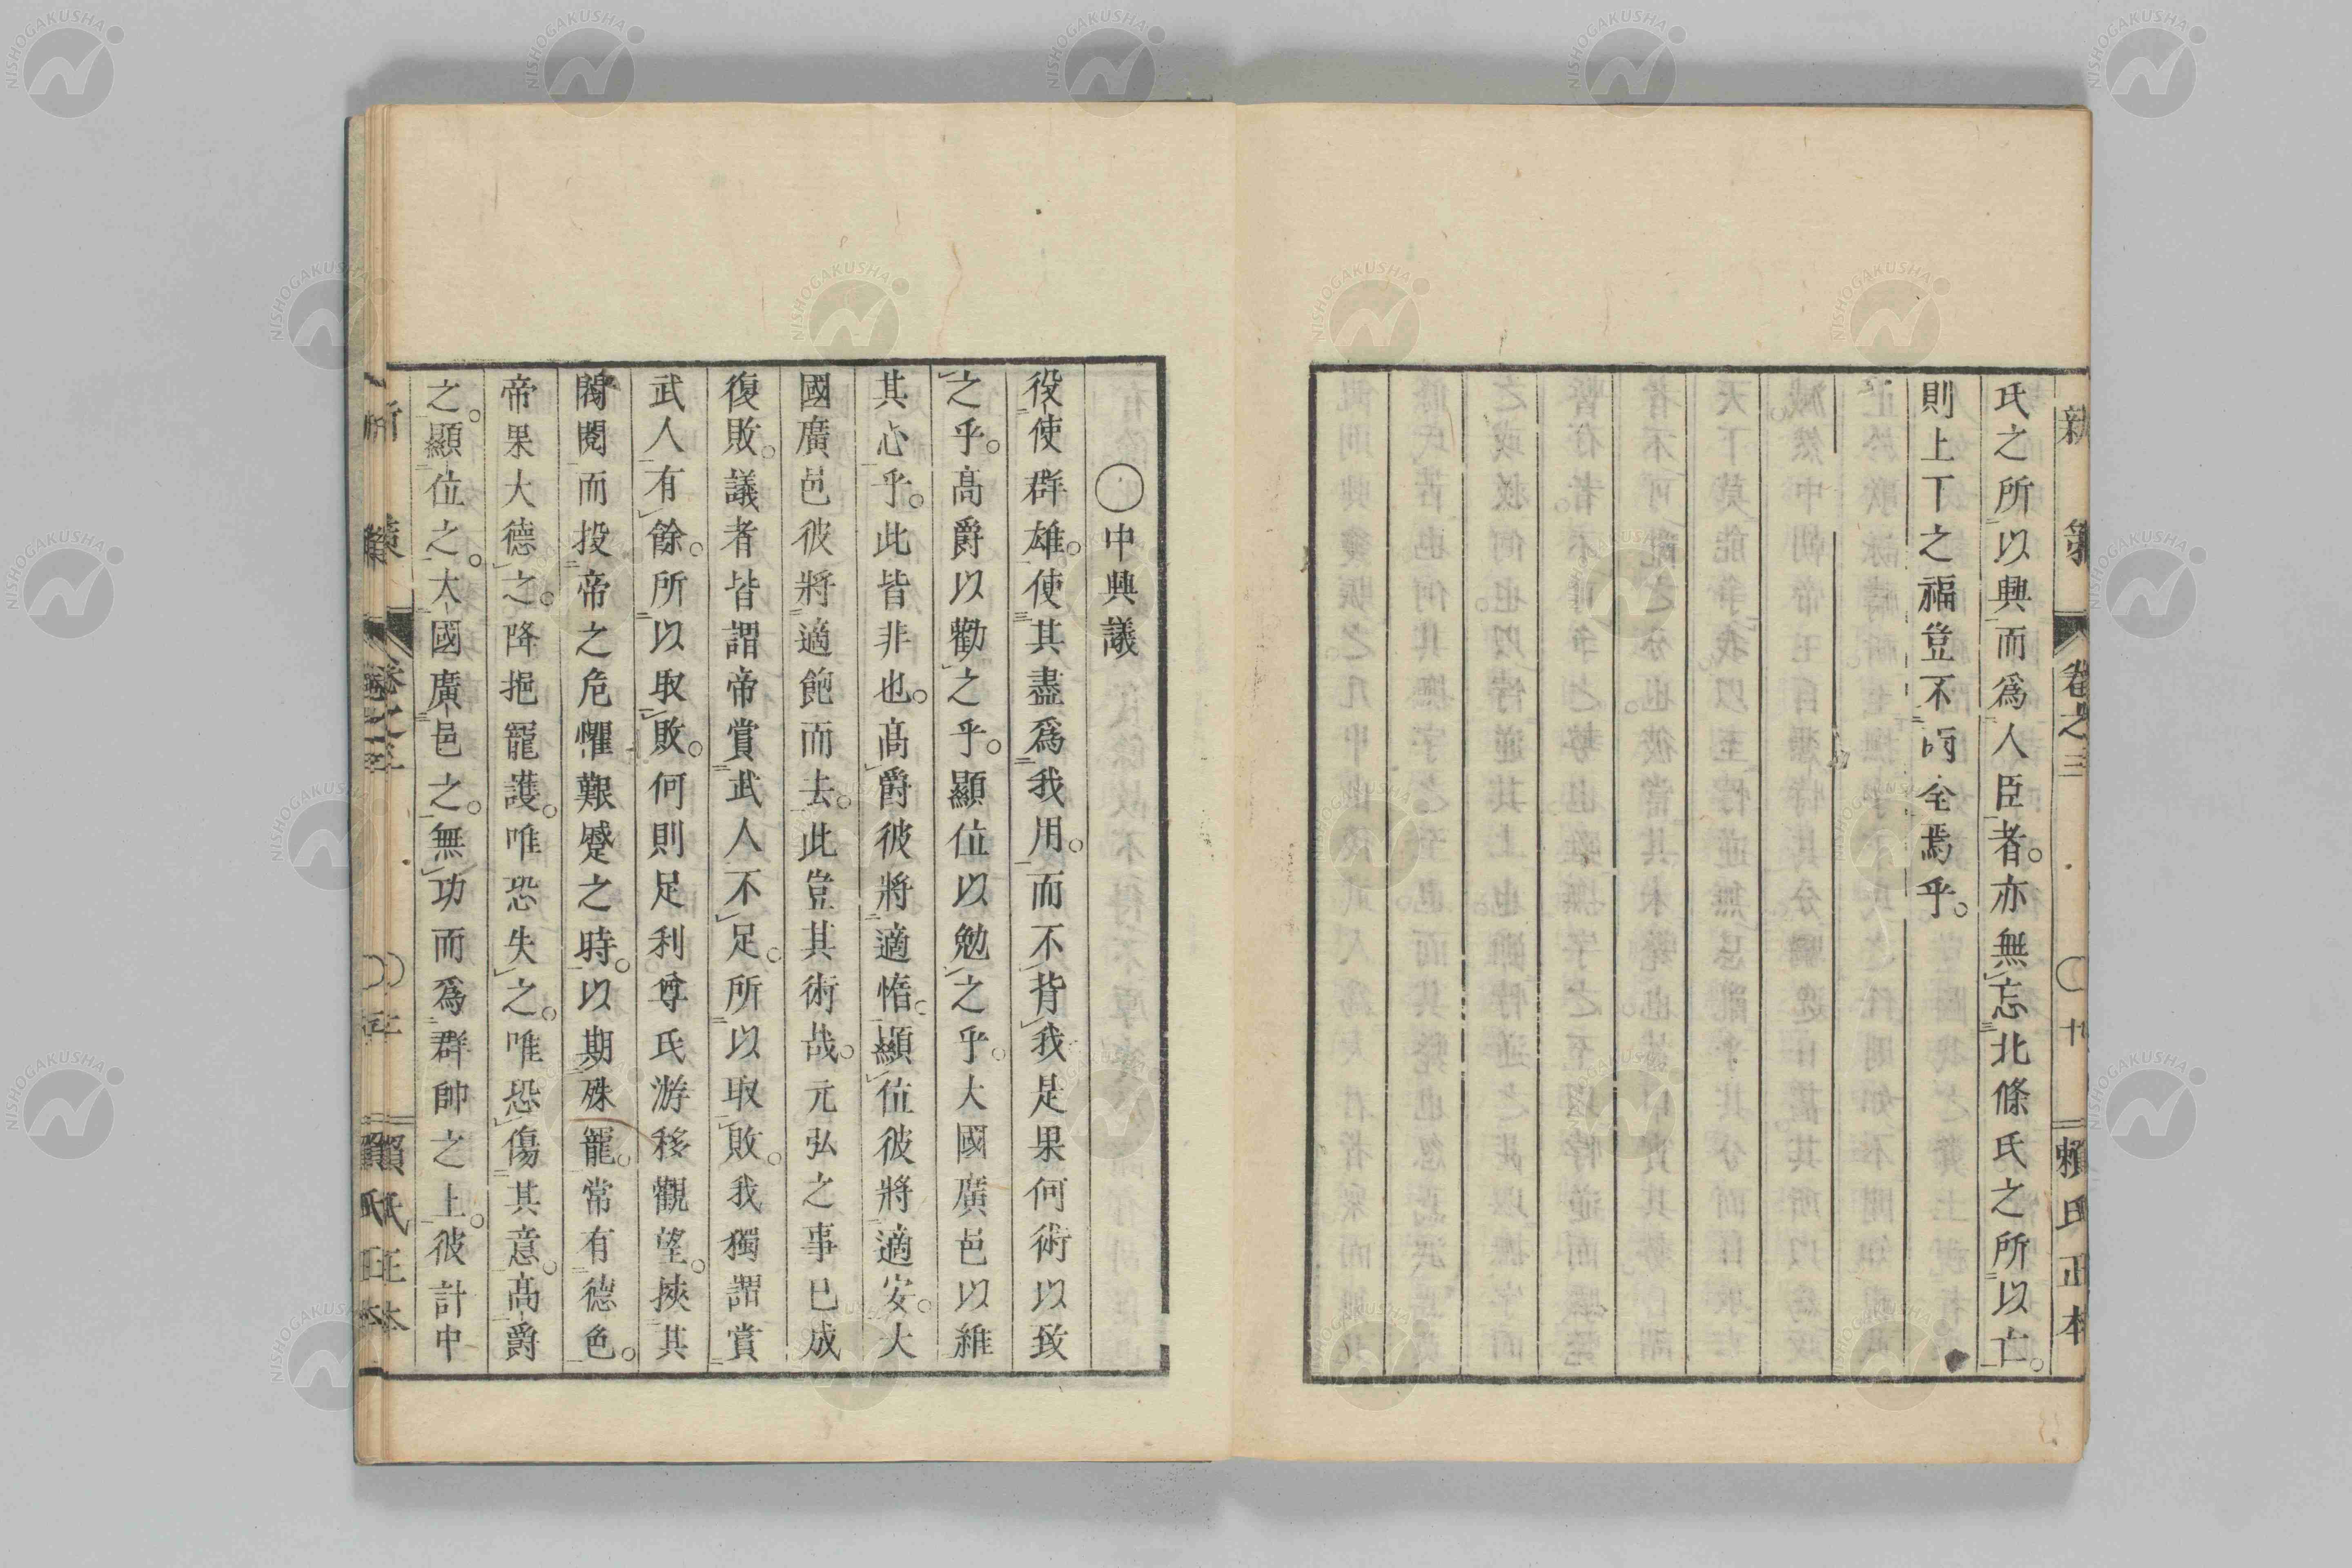 新策 卷之三 ○ 十 賴氏正本
氏之所以興而爲人臣者。亦無忘北條氏之所以亡。
則上下之福豈不兩全焉乎。
○中興議
役使群雄。使其盡爲我用。而不背我是果何術以致
之乎。高爵以勸之乎。顯位以勉之乎。大國廣邑以維
其心乎。此皆非也。高爵彼將適惰。顯位彼將適安。大
國廣邑彼將適飽而去。此豈其術哉。元弘之事已成
復敗。議者皆謂帝賞武人不足。所以取敗。我獨謂賞
武人有餘。所以取敗。何則足利尊氏游移觀望。挾其
閥閱而投帝之危懼艱蹙之時。以期殊寵。常有德色。
帝果大德之。降挹寵護。唯恐失之。唯恐傷其意。高爵
之。顯位之。大國廣邑之。無功而爲群帥之上。彼計中
NISHOGAKUSHA